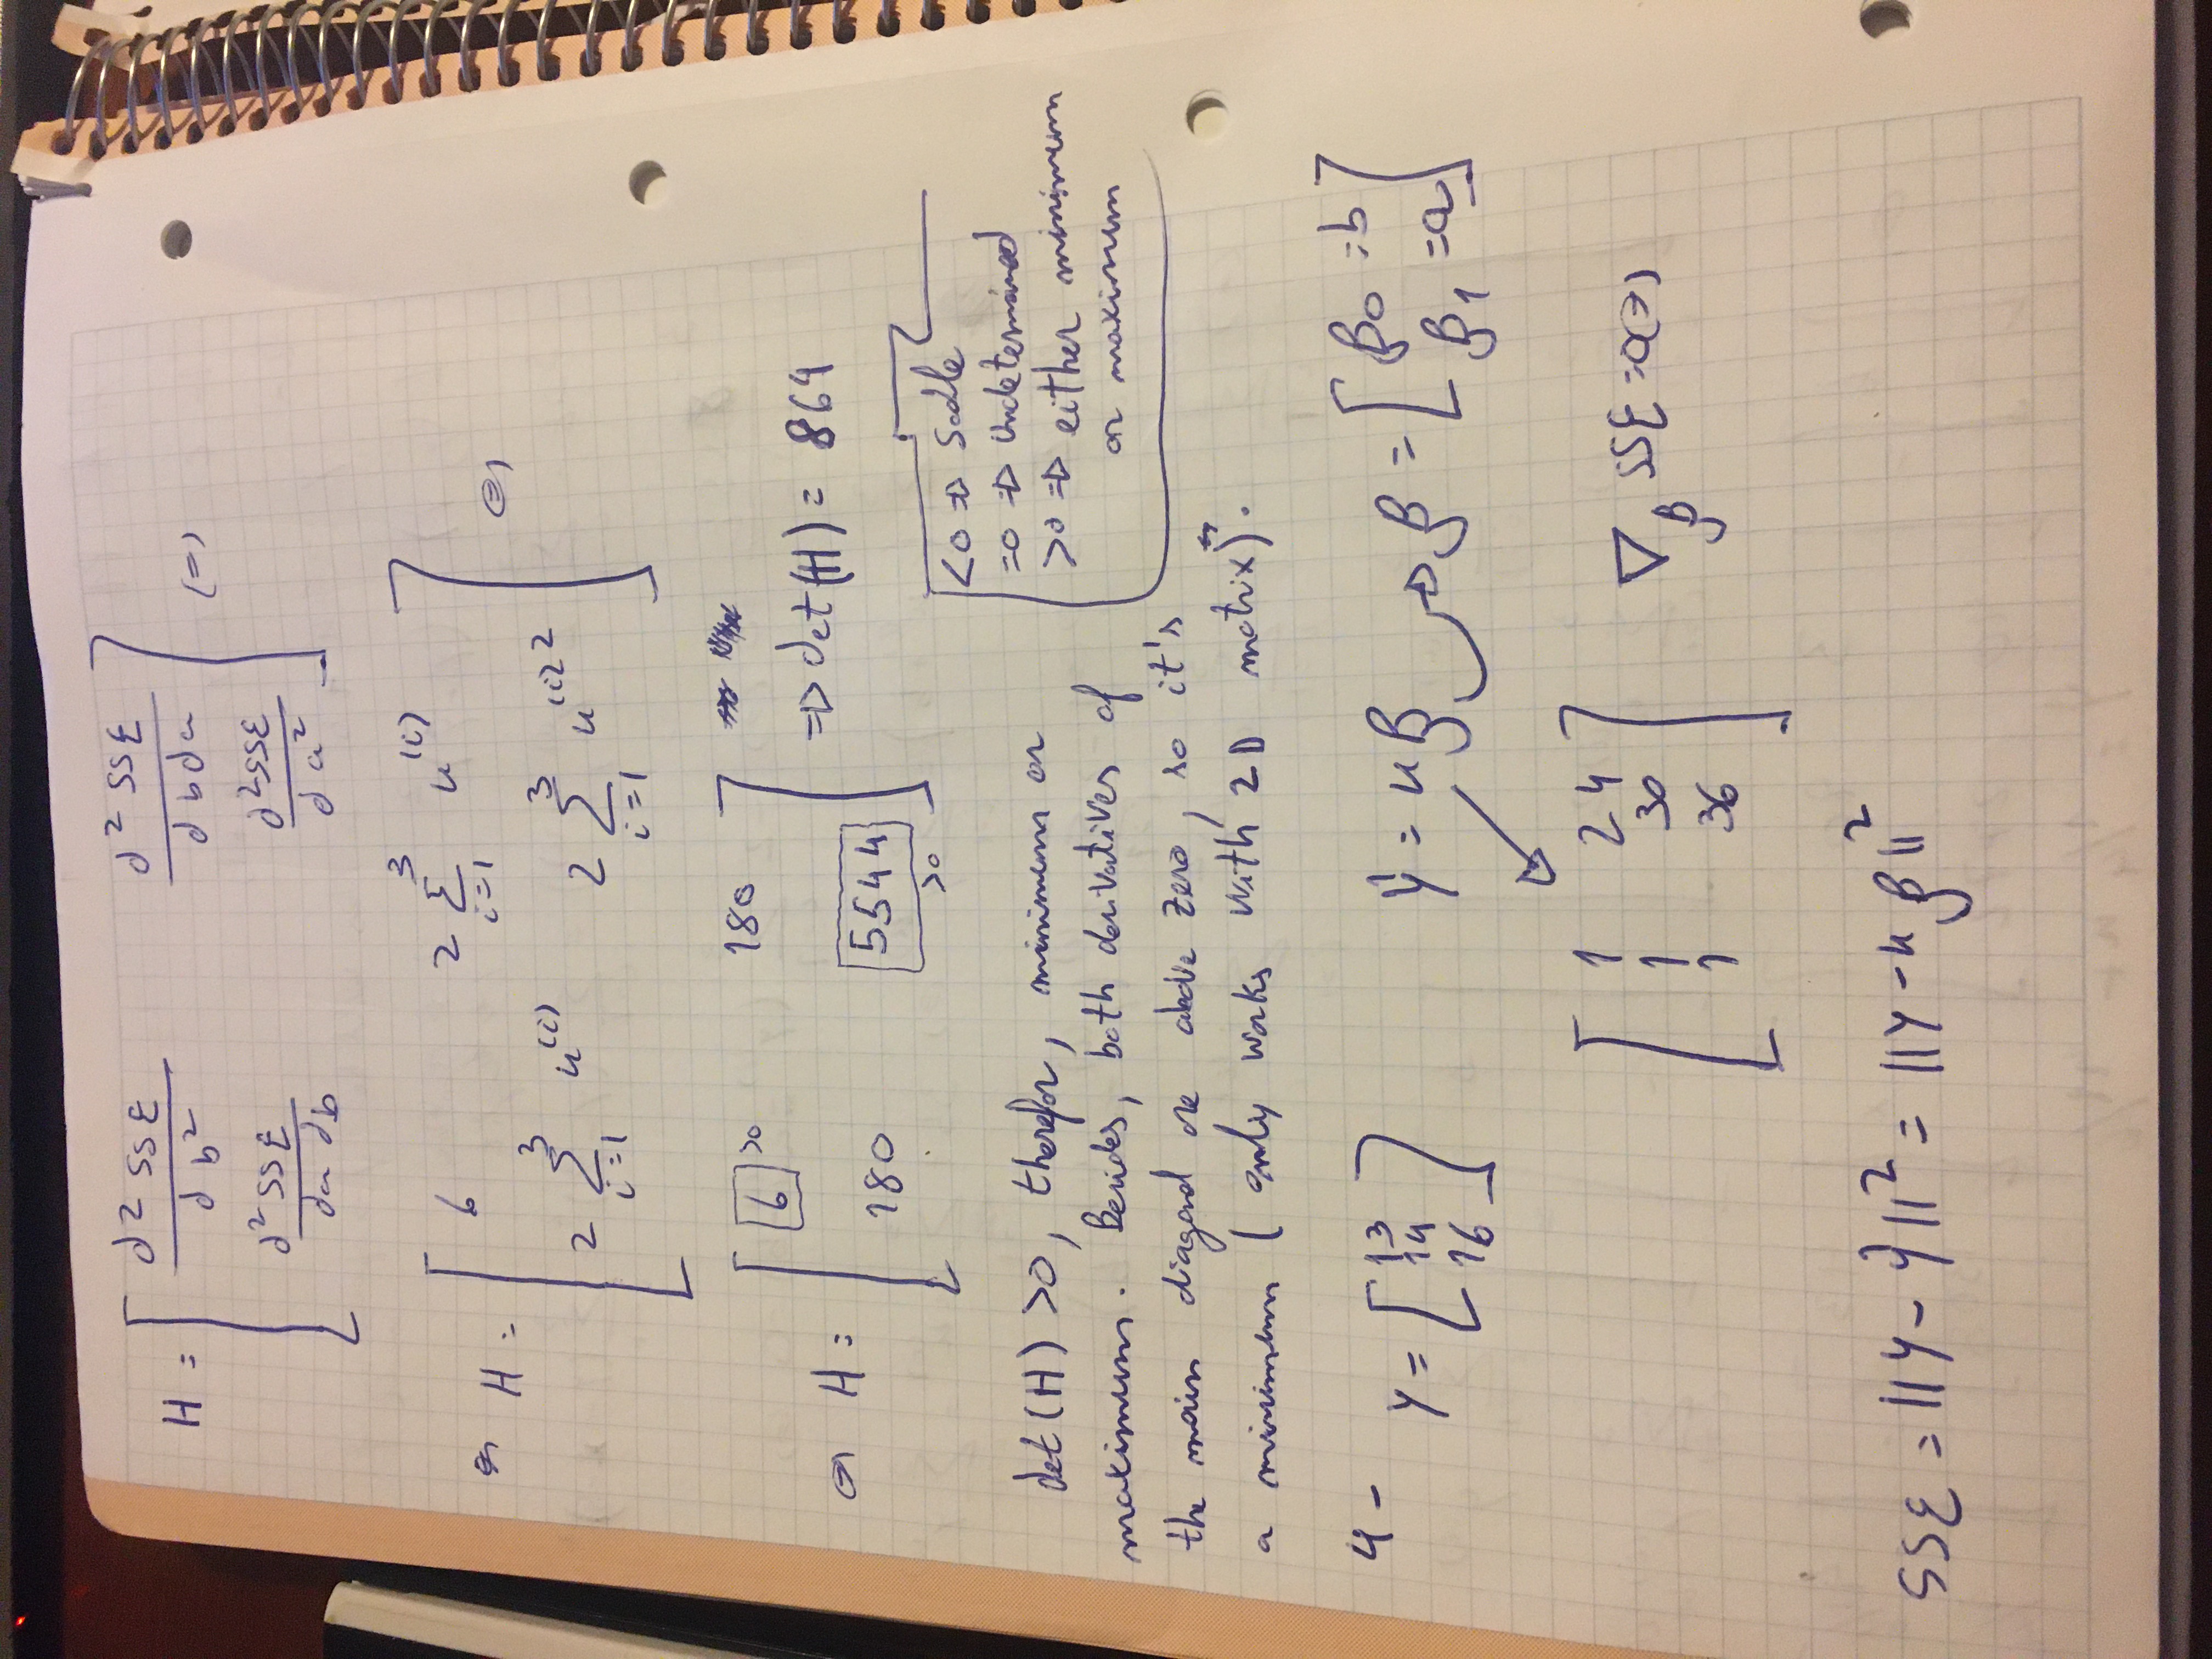 H = [ d² SSE / d b²   d² SSE / d b d a ] (=)
[ d² SSE / da db   d² SSE / d a² ]
H = [ 6   2 Σ_{i=1}^{3} u^{(i)} ] (=)
[ 2 Σ_{i=1}^{3} u^{(i)}   2 Σ_{i=1}^{3} u^{(i)2} ]
H = [ 6 >0   180 ] => det(H) = 864
[ 180   5544 >0 ]
<0 => Sadle
=0 => Undetermined
>0 => either minimum
or maximum
det(H) >0, therefor, minimum or
maximum. Besides, both derivatives of
the main diagonal are above zero, so it's
a minimum (only works with 2D matrix).
4 - y = [ 13 14 16 ]   ŷ = uβ → β = [ β0 = b   β1 = a ]
[ 1 24
1 30
1 36 ]   ∇β SSE = 0 (=)
SSE = ||y - ŷ||² = ||y - u β||²